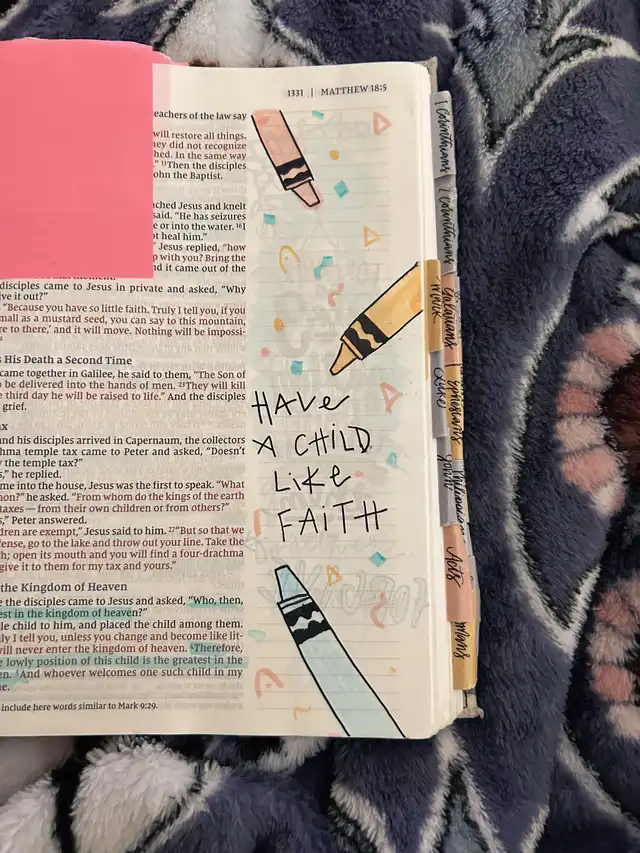 1331 | MATTHEW 18:5
teachers of the law say
will restore all things.
they did not recognize
hed. In the same way
" ¹³Then the disciples
ohn the Baptist.
ached Jesus and knelt
said. "He has seizures
e or into the water. ¹⁶I
ot heal him."
Jesus replied, "how
p with you? Bring the
nd it came out of the
disciples came to Jesus in private and asked, "Why
ive it out?"
"Because you have so little faith. Truly I tell you, if you
mall as a mustard seed, you can say to this mountain,
re to there,' and it will move. Nothing will be impossi-
s His Death a Second Time
came together in Galilee, he said to them, "The Son of
o be delivered into the hands of men. ²³They will kill
e third day he will be raised to life." And the disciples
grief.
ax
and his disciples arrived in Capernaum, the collectors
hma temple tax came to Peter and asked, "Doesn't
y the temple tax?"
s," he replied.
me into the house, Jesus was the first to speak. "What
mon?" he asked. "From whom do the kings of the earth
taxes—from their own children or from others?"
s," Peter answered.
dren are exempt," Jesus said to him. ²⁷"But so that we
fense, go to the lake and throw out your line. Take the
h; open its mouth and you will find a four-drachma
give it to them for my tax and yours."
the Kingdom of Heaven
e the disciples came to Jesus and asked, "Who, then,
est in the kingdom of heaven?"
le child to him, and placed the child among them.
uly I tell you, unless you change and become like lit-
will never enter the kingdom of heaven. ⁴Therefore,
e lowly position of this child is the greatest in the
en. ⁵And whoever welcomes one such child in my
e.
include here words similar to Mark 9:29.
HAVE
A CHILD
LIKE
FAITH
1 Corinthians
2 Corinthians
Galatians
Mark
Ephesians
Luke
Philippians
John
Acts
mans